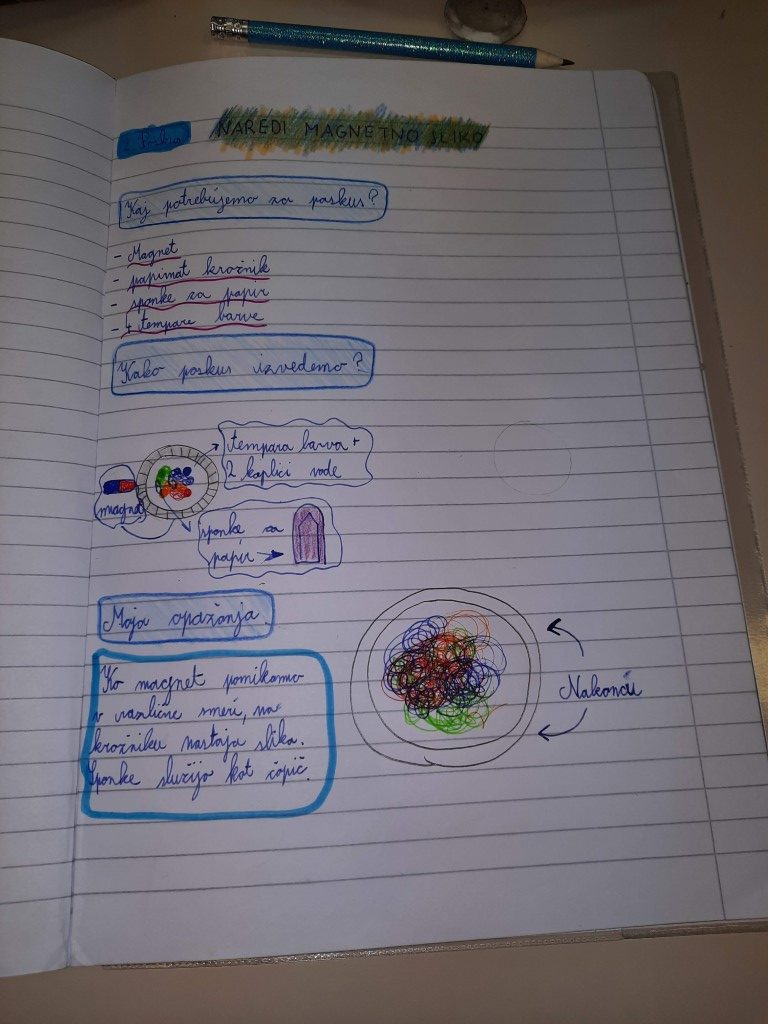 2. Poskus
NAREDI MAGNETNO SLIKO
Kaj potrebujemo za poskus?
- Magnet
- papirnat krožnik
- sponke za papir
- 4 tempare barve
Kako poskus izvedemo?
tempara barva +
2 kaplici vode
magnet
sponke za
papir
Moja opažanja
Ko magnet pomikamo
v različne smeri, na
krožniku nastaja slika.
Sponke služijo kot čopič.
Nakoncu